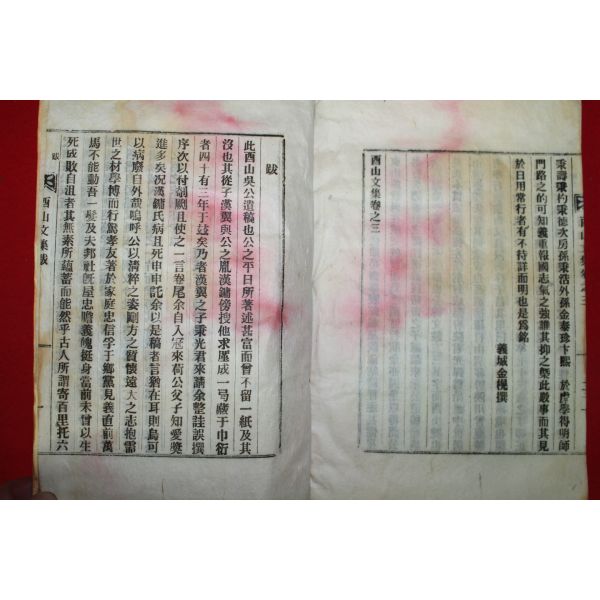 秉壽秉杓秉德次房孫秉浩外孫金泰珍卞熙 於虖學得明師
門路之的可知義重報國志氣之強誰其抑之槩此數事而其見
於日用常行者有不待詳而明也是爲銘
義城金榥撰
酉山文集卷之三
跋
此酉山吳公遺稿也公之平日所著述甚富而曾不留一紙及其
沒也其從子漢翼與公之胤漢鏞傍搜他求厪成一弓藏于巾衍
者四十有三年于玆矣乃者漢翼之子秉光君來請余整註誤撰
序次以付剞劂且使之一言卷尾余自入冠來荷公父子知愛奬
進多矣况漢鏞氏病且死申申託余以是稿者言猶在耳則烏可
以病廢自外哉嗚呼公以清粹之姿剛方之質懷遠大之志抱需
世之材學博而行篤孝友著於家庭忠信孚于鄉黨見義直前萬
馬不能動吾一髮及夫邦社旣屋忠膽義魄挺身當前未曾以生
死成敗自沮者其無素所蘊蓄而能然乎古人所謂寄百里托六
酉山文集跋